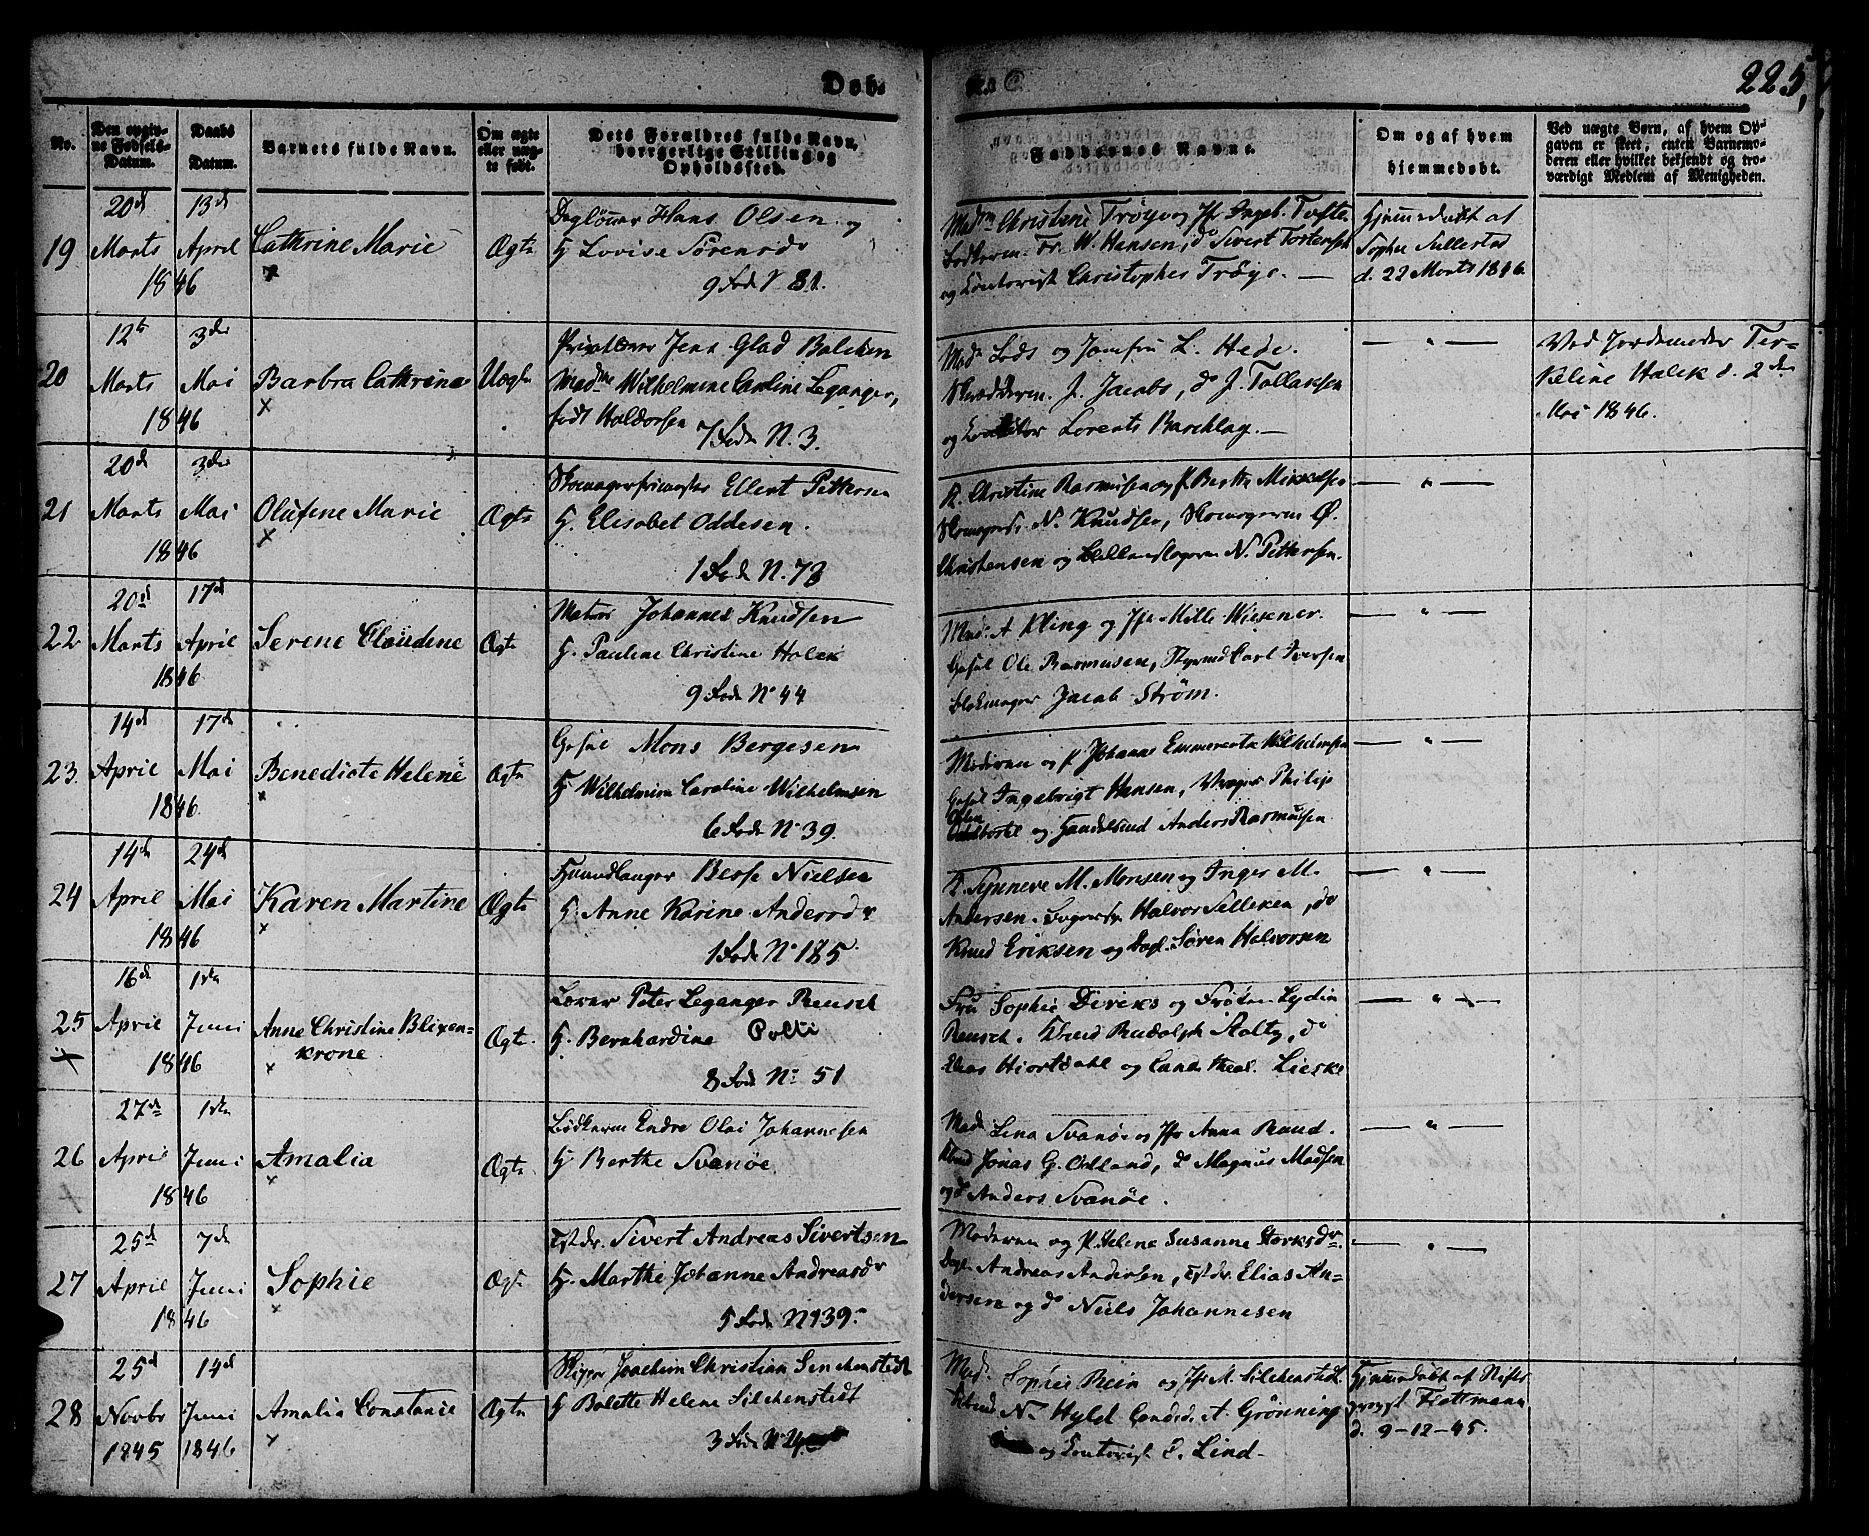 Døb-
te C
225,
No.
Den opgiv-
ne Fødsels-
Datum.
Daabs
Datum.
Barnets fulde Navn.
Om ægte
eller uæg-
te født.
Dets Forældres fulde Navn,
borgerlige Stilling og
Opholdssted.
Faddernes Navne.
Om og af hvem
hjemmedøbt.
Ved uægte Børn, af hvem Op-
gaven er skeet, enten Barnemo-
deren eller hvilket bekjendt og tro-
værdigt Medlem af Menigheden.
19
20d
Marts
1846
13d
April
Cathrine Marie
x
Ægte
Hans Olsen og
H Lovise Sørensd
9 Fode N 81.
Christene Trøye og Jfr Ingeb.
W. Hansen, do Sivert
og Contorist Christopher Trøye. —
Hjemmedøbt af
Sophie
d. 22 Marts 1846
20
12te
Marts
1846
3die
Mai
Barbra Cathrine
x
Uægte
Jens Glad Balchen
Madme Wilhelmine Caroline Leganger,
født Haldorsen
7 Fode N. 3.
Mad Lods og Jomfru L. Hede.
J. Jacobs, do J. Tollaksen
og Lorents Barchlag. —
— " —
Ved Jordemoder
Halck d. 2den
Mai 1846.
21
20d
Marts
1846
3die
Mai
Olufine Marie
x
Ægte
Ellert Pettersen
H. Elisabet Oddesen.
1 Fode N. 78
P. Christine Rasmusen og P. Berthe Mikkelsen
N. Knudsen, Skomagerm Ø.
Christensen og N. Pettersen.
— " —
22
20d
Marts
1846
17d
April
Serene Claudene
x
Ægte
Matros Johannes Knudsen
H. Pauline Christine Halck
9 Fode No 44
Mad. A Kling og Jfr Mille Wiesener.
Gesel Ole Rasmusen, Styrmd Carl Iversen
Blokmager Jacob Strøm.
— " —
23.
14d
April
1846
17d
Mai
Benedicte Helene
x
Ægte
Gesel Mons Bergesen
H Wilhelmine Caroline Wilhelmsen
6 Fode No 39.
Moderen og P. Johanne Emmerentse Wilhelmsen
Gesel Ingebrigt Hansen, Vrager Philip
og Handelsmd Anders Rasmusen
— " —
24
14d
April
1846
24d
Mai
Karen Martine
x
Ægte
Haandlanger Berge Nielsen
H. Anne Karine Andersdr
1 Fode No 185
P. Synneve M. Monsen og Inger M.
Andersen. Halvor Selleken, do
Knud Eriksen og Dagl. Søren Halvorsen
— " —
25
x
16d
April
1846
1ste
Juni
Anne Christine Blixen-
krone
x
Ægte
Lærer Peter Leganger Reusch
H. Bernhardine Polti
8 Fode No 51
Fru Sophie Direks og Frøken Lydia
Reusch. Kbmd Rudolph Stoltz, do
Elias Hiortdahl og Cand. theol. Lieske
— " —
26
27de
April
1846
1ste
Juni
Amalia
x
Ægte
Bødkerm Endre Olai Johannesen
H Berthe Svanøe.
Mad. Lina Svanøe og Jfr Anna Raud.
Kbmd Jonas G. Odland, do Magnus Madsen
og do Anders Svanøe.
— " —
27
25d
April
1846
7de
Juni
Sophie
x
Ægte
Sivert Andreas Sivertsen
H. Marthe Johanne Andreasdr
5 Fode N 139.
Moderen og P. Helene Susanne Størksdr.
Dagl Andreas Andersen, Elias An-
dersen og do Niels Johannesen
— " —
28
25d
Novbr
1845
14d
Juni
1846
Amalia Constance
x
Ægte
Skipper Joachim Christian Sinchenstedt
H Bolette Helene Silchenstedt
3 Fode N 24
Mad. Sophie Rein og Jfr A Silchenstedt
Kbmd N. Hyld Candid. A. Grønning
og Contorist P. Lind.
Hjemmedøbt af Stifts
provst
d. 9-12-45.